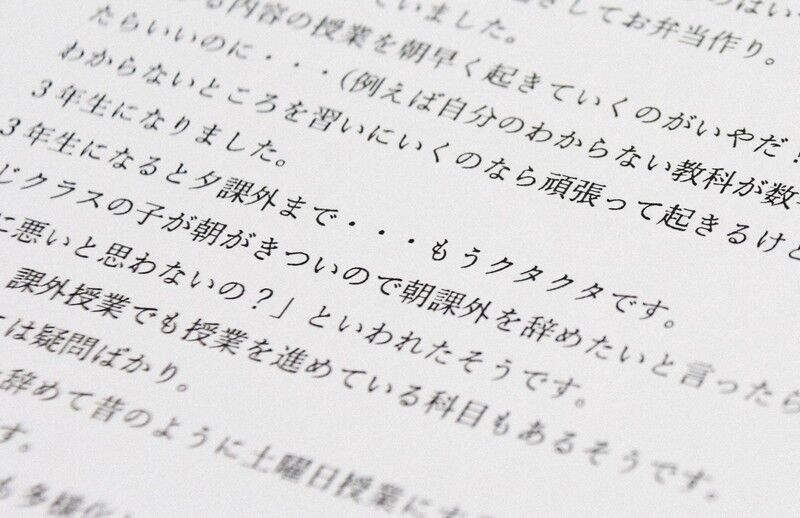 してお弁当作り。
る内容の授業を朝早く起きていくのがいやだ！
ていました。
たらいいのに・・・(例えば自分のわからない教科が数
わからないところを習いにいくのなら頑張って起きるけど
３年生になりました。
３年生になると夕課外まで・・・もうクタクタです。
じクラスの子が朝がきついので朝課外を辞めたいと言ったら
に悪いと思わないの？」といわれたそうです。
課外授業でも授業を進めている科目もあるそうです。
は疑問ばかり。
辞めて昔のように土曜日授業にす
す。
も多様化